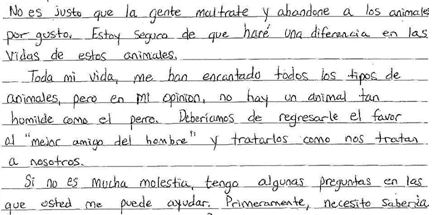 No es justo que la gente maltrate y abandone a los animales
por gusto. Estoy segura de que haré una diferencia en las
vidas de estos animales.
Toda mi vida, me han encantado todos los tipos de
animales, pero en mi opinion, no hay un animal tan
humilde como el perro. Deberíamos de regresarle el favor
al "mejor amigo del hombre" y tratarlos como nos tratan
a nosotros.
Si no es mucha molestia, tengo algunas preguntas en las
que usted me puede ayudar. Primeramente, necesito saber